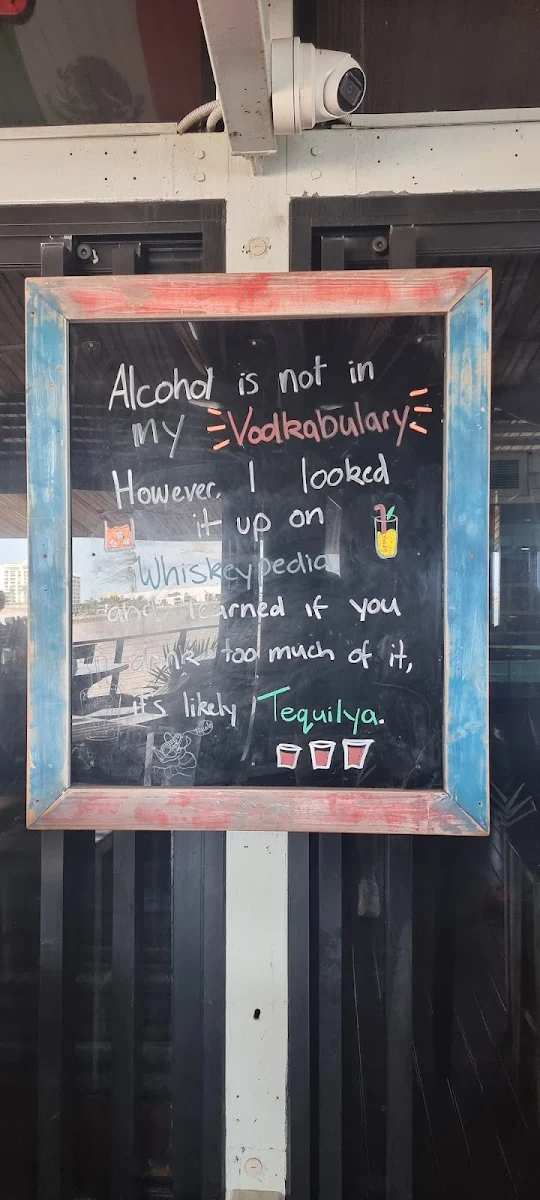 Alcohol is not in
my Vodkabulary
However, I looked
it up on
Whiskeypedia
and learned if you
drink too much of it,
it's likely Tequilya.